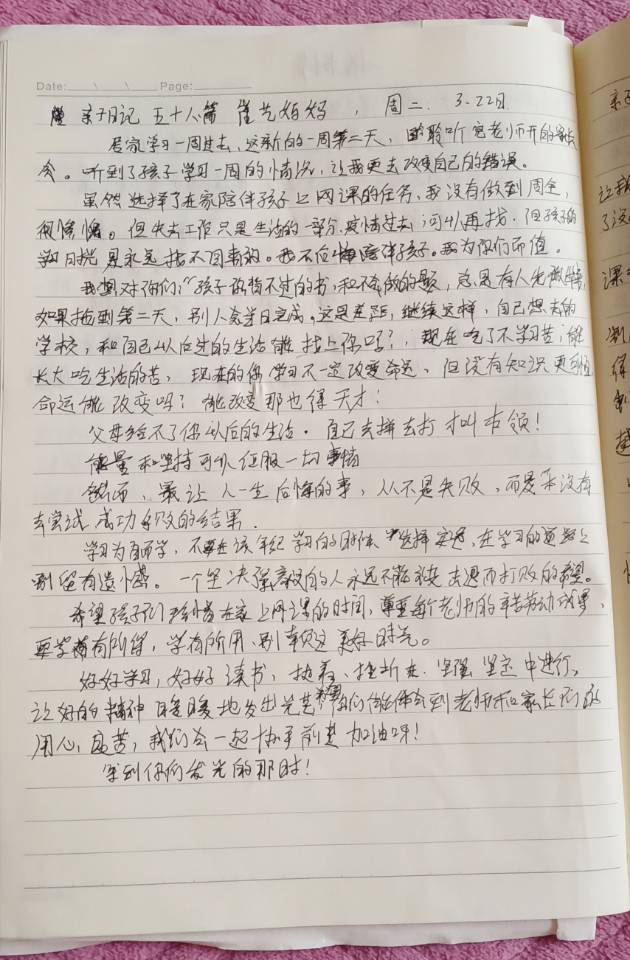 Date: \ \ Page:
亲子日记 五十八篇 崔艺妈妈 , 周二. 3.22日
居家学习一周过去,这新的一周第二天, 聆听宫老师开的家长
会。听到了孩子学习一周的情况,让我更去改变自己的错误。
虽然选择了在家陪伴孩子上网课的任务,我没有做到周全,
很惭愧。但失去工作只是生活的一部分,疫情过去可以再找.但孩子的
学习时光是永远找不回来的。我不后悔陪伴孩子。我为你们而值。
我想对你们:"孩子那背不过的书,和不会做的题,总是有人先做
如果拖到第二天,别人会当日完成.这是差距,继续这样,自己想去的
学校,和自己以后过的生活能找上你吗?,现在吃了不学习苦,能
长大吃生活的苦, 现在的你学习不一定改变命运,但没有知识更
命运能改变吗? 能改变那也得天才!
父母给不了你以后的生活.自己去拼去打才叫本领!
能量和坚持可以征服一切事情
然而、最让人一生后悔的事,从不是失败,而是本没有
去尝试成功失败的结果.
学习为自而学,不要在该年纪学习的时候选择安逸,在学习的道路上
别留有遗憾。一个坚决强毅的人永远不能失去退而打败的希望。
希望孩子们珍惜在家上网课的时间,尊重每个老师的辛苦劳动成果,
要学有所得,学有所用,别辜负这美好时光。
好好学习,好好读书,执着、挫折在坚强坚定中进行。
让好的精神 暖暖地发出光芒 你们能体会到老师和家长们的
用心,良苦,我们会一起协手前进 加油呀!
等到你们发光的那时!